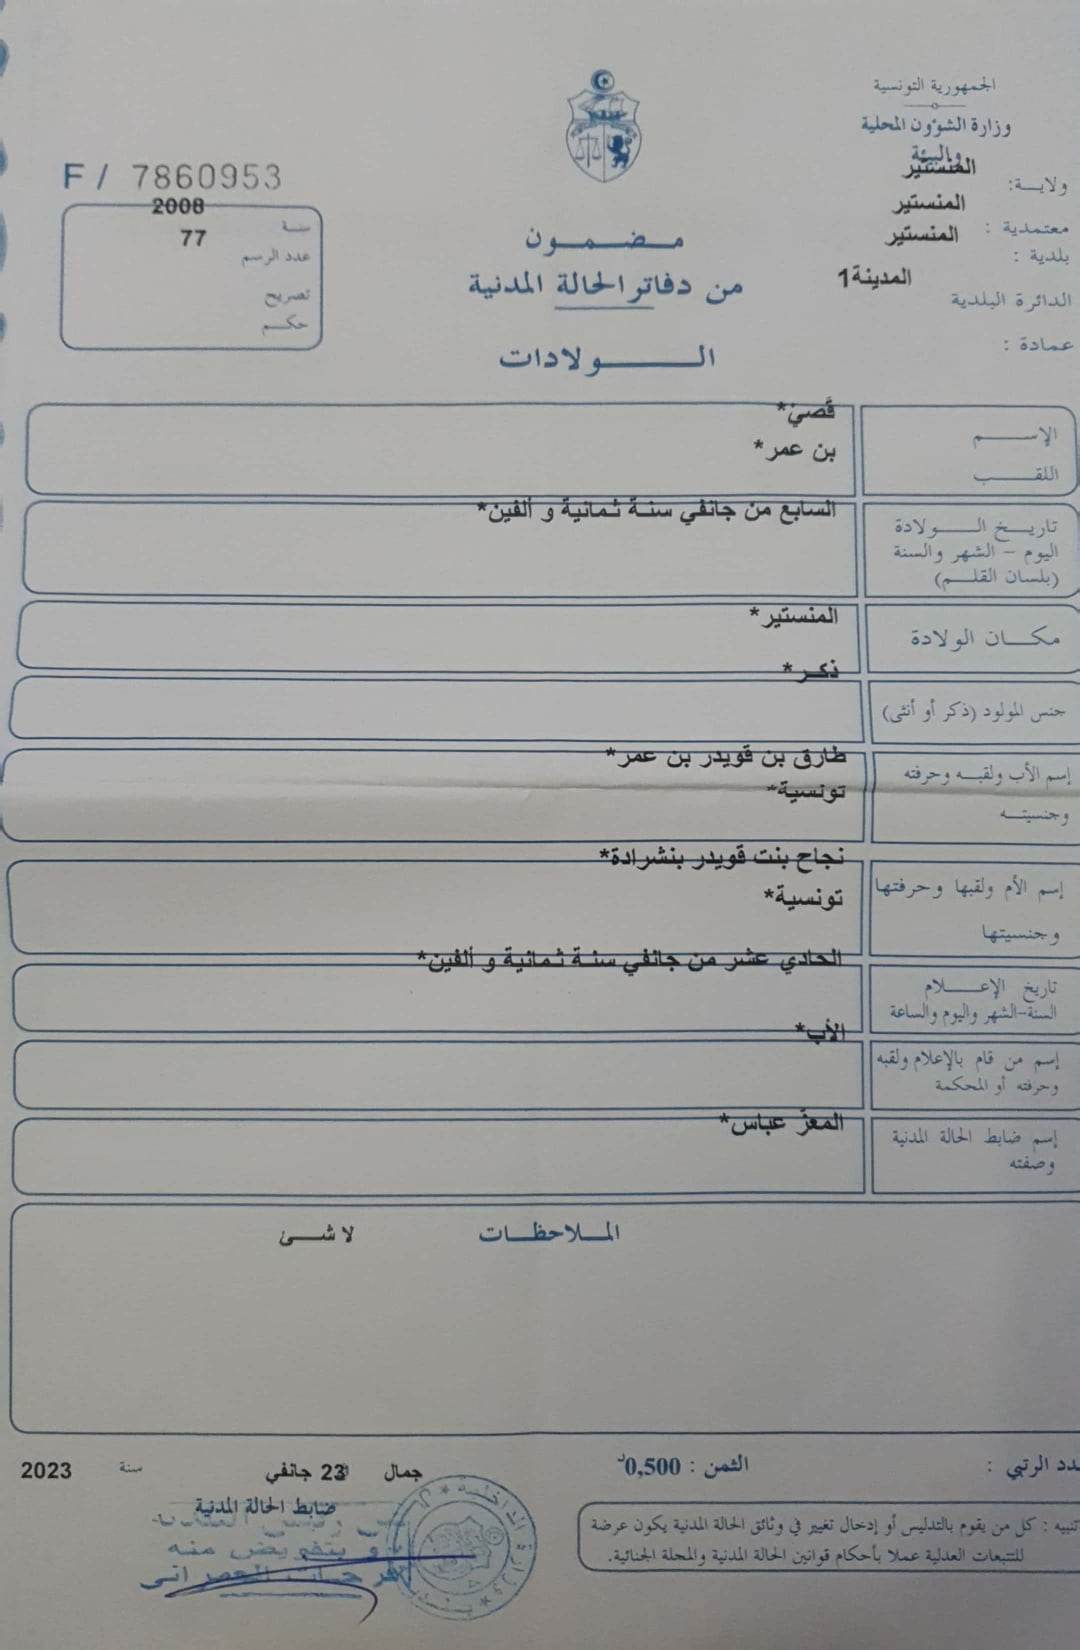 الجمهورية التونسية
وزارة الشؤون المحلية
والبيئة
ولايــة: المنستير
معتمدية : المنستير
بلدية : المنستير
الدائرة البلدية المدينة1
عمادة :
F / 7860953
سنة 2008
عدد الرسم 77
تصريح
حكم
مضمون
من دفاتر الحالة المدنية
الولادات
الإسم قصيّ*
اللقب بن عمر*
تاريخ الولادة السابع من جانفي سنة ثمانية و ألفين*
اليوم – الشهر والسنة
(بلسان القلم)
مكان الولادة المنستير*
جنس المولود (ذكر أو أنثى) ذكر*
إسم الأب ولقبه وحرفته طارق بن قويدر بن عمر*
وجنسيته تونسية*
إسم الأم ولقبها وحرفتها نجاح بنت قويدر بنشرادة*
وجنسيتها تونسية*
تاريخ الإعلام الحادي عشر من جانفي سنة ثمانية و ألفين*
السنة-الشهر واليوم والساعة
إسم من قام بالإعلام ولقبه الأب*
وحرفته أو المحكمة
إسم ضابط الحالة المدنية المعزّ عباس*
وصفته
الملاحظات لا شئ
الرتبي :
الثمن : 0,500د
جمال 23 جانفي سنة 2023
ضابط الحالة المدنية
و بتفويض منه
تنبيه : كل من يقوم بالتدليس أو إدخال تغيير في وثائق الحالة المدنية يكون عرضة
للتبعات العدلية عملا بأحكام قوانين الحالة المدنية والمجلة الجنائية.